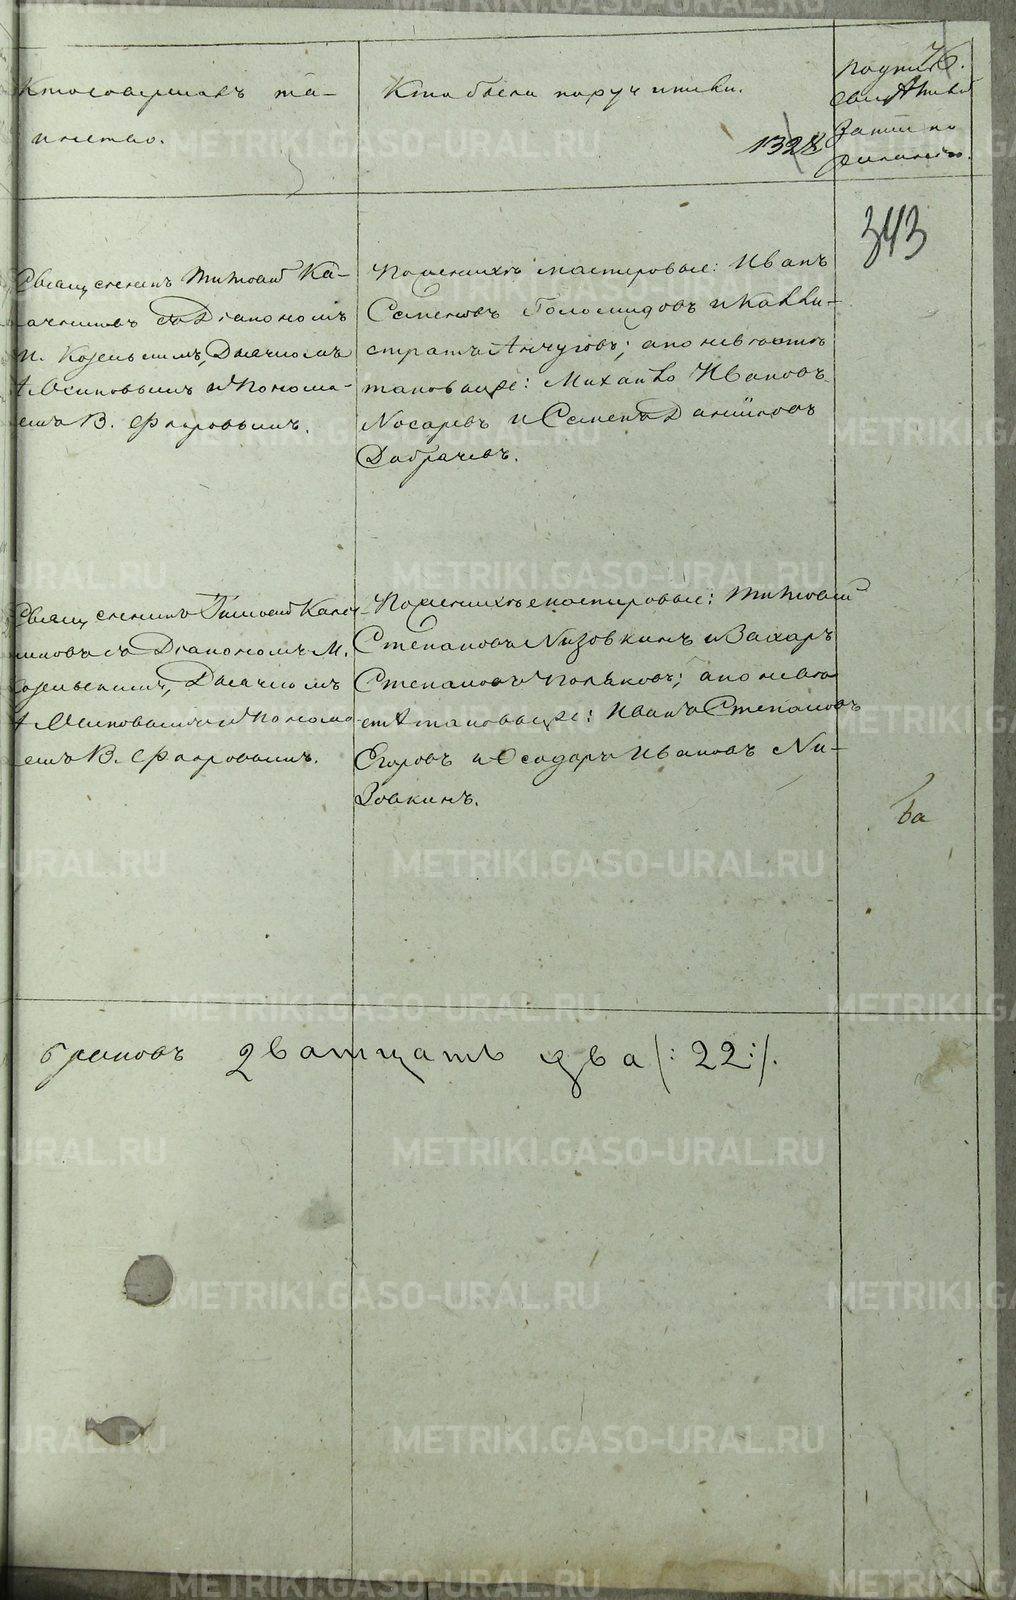 Кто совершалъ та-
инство.
Кто были поручители.
1328
Подпись
свидѣтелей
записи по
желанію.
343
Священникъ Тимофей Ка-
лачниковъ съ Діакономъ
М. Козельскимъ, Дьячкомъ
А. Осиповымъ и Понома-
емъ В. Флоровымъ.
По женихѣ мастеровые: Иванъ
Семеновъ Голомидовъ и Калли-
стратъ Анчуговъ; а по невѣстѣ
таковыеже: Михайло Ивановъ
Носаревъ и Семенъ Даниловъ
Добрачевъ.
Священникъ Тимофей Калач
никовъ съ Діакономъ М.
Козельскимъ, Дьячкомъ
А. Осиповымъ и Понома-
емъ В. Флоровымъ.
По женихѣ мастеровые: Тимофей
Степановъ Низовкинъ и Захаръ
Степановъ Поляковъ; а по невѣ-
стѣ таковыеже: Иванъ Степановъ
Егоровъ и Ѳеодоръ Ивановъ Ни-
зовкинъ.
ба
браковъ дватцать два /: 22 :/.
METRIKI.GASO-URAL.RU